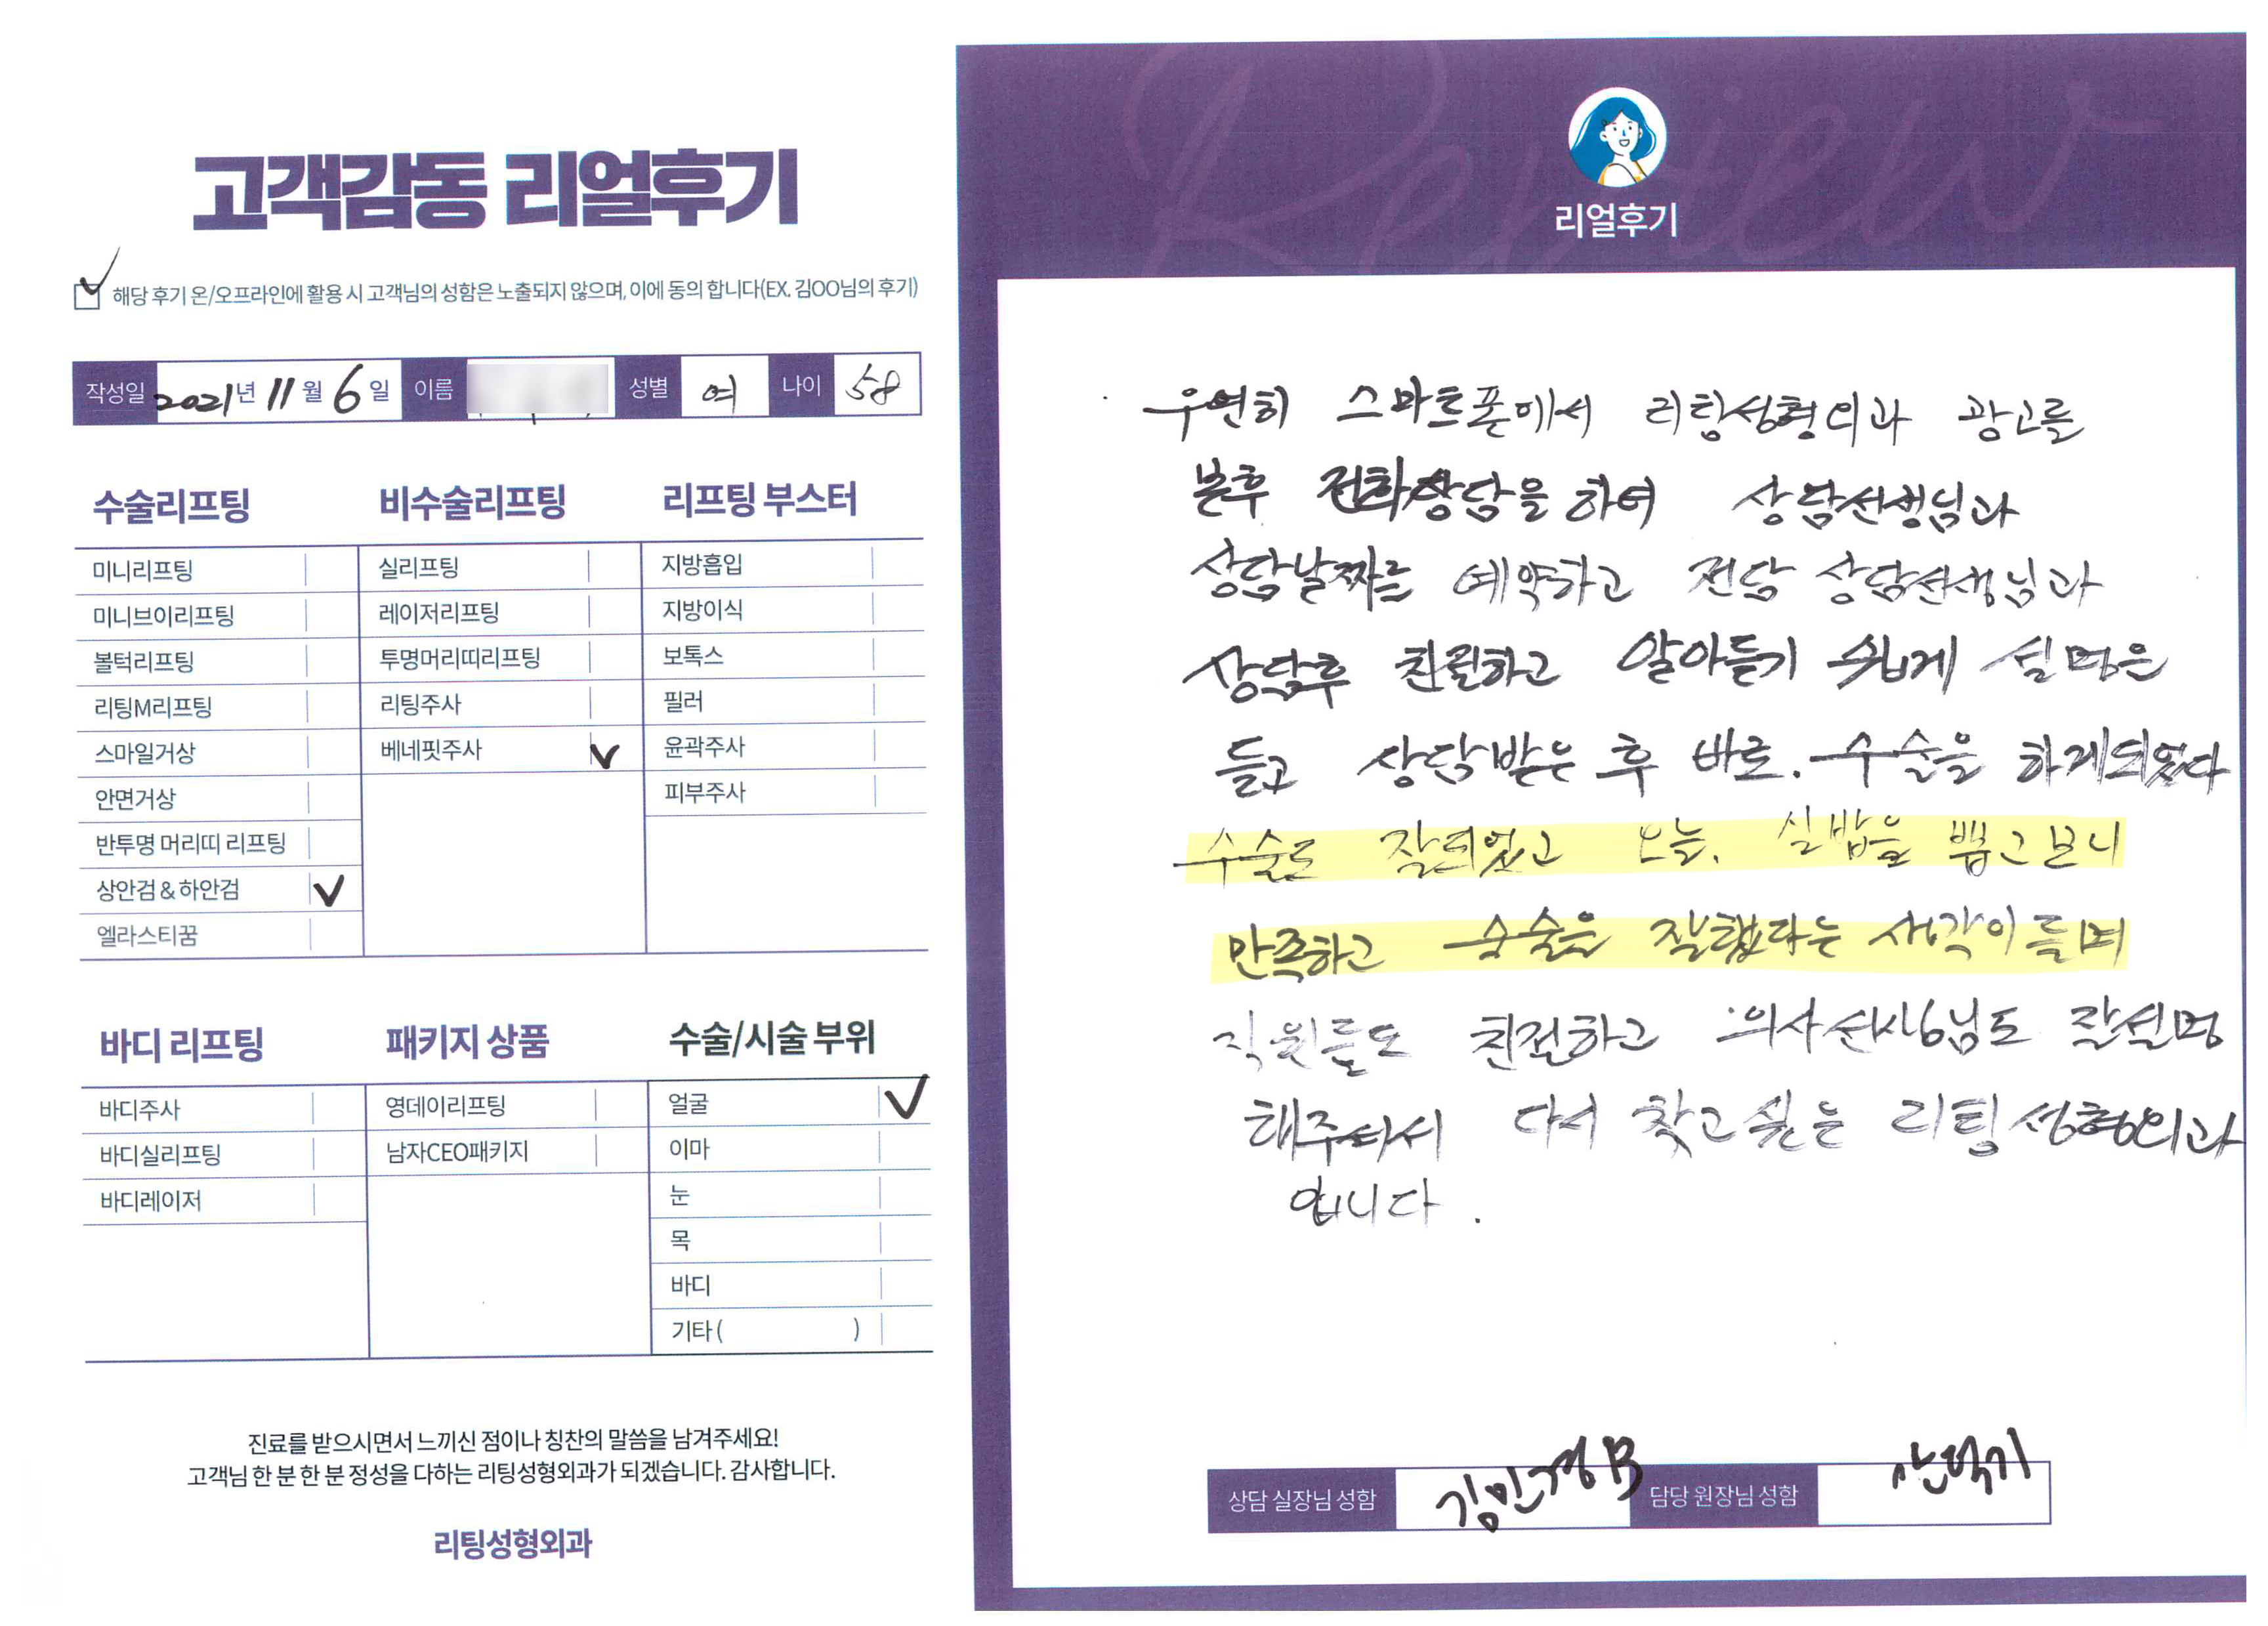 고객감동 리얼후기
해당 후기 온/오프라인에 활용 시 고객님의 성함은 노출되지 않으며, 이에 동의 합니다(EX. 김OO님의 후기)
작성일 2021년 11월 6일 이름 성별 여 나이 58
수술리프팅
미니리프팅
미니브이리프팅
볼턱리프팅
리팅M리프팅
스마일거상
안면거상
반투명 머리띠 리프팅
상안검&하안검
엘라스티꿈
비수술리프팅
실리프팅
레이저리프팅
투명머리띠리프팅
리팅주사
베네핏주사
리프팅 부스터
지방흡입
지방이식
보톡스
필러
윤곽주사
피부주사
바디 리프팅
바디주사
바디실리프팅
바디레이저
패키지 상품
영데이리프팅
남자CEO패키지
수술/시술 부위
얼굴
이마
눈
목
바디
기타 ( )
진료를 받으시면서 느끼신 점이나 칭찬의 말씀을 남겨주세요!
고객님 한 분 한 분 정성을 다하는 리팅성형외과가 되겠습니다. 감사합니다.
리팅성형외과
Review
리얼후기
우연히 스마트폰에서 리팅성형외과 광고를
본후 전화상담을 하여 상담선생님과
상담날짜를 예약하고 전담 상담선생님과
상담후 친절하고 알아듣기 쉽게 설명은
듣고 상담받은 후 바로. 수술을 하게되었다
수술도 잘되었고 오늘. 실밥을 뽑고보니
만족하고 수술을 잘했다는 생각이들며
직원들도 친절하고 의사선생님도 잘설명
해주셔서 다시 찾고싶은 리팅성형외과
입니다.
상담 실장님 성함 김민경B 담당 원장님 성함